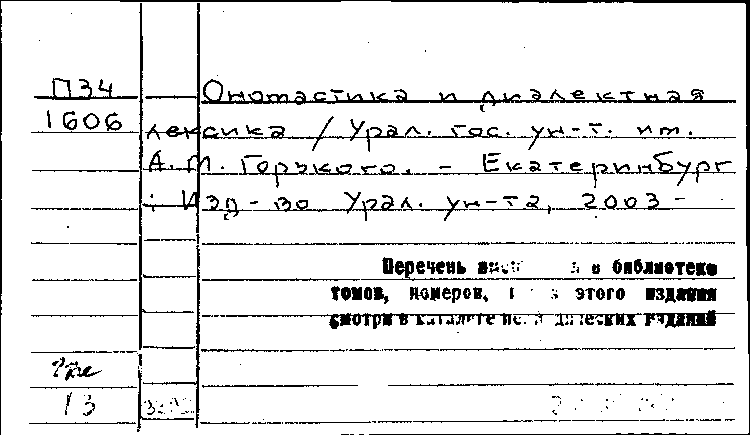 П34
1606
Ономастика и диалектная
лексика / Урал. гос. ун-т. им.
А. М. Горького. - Екатеринбург
: Изд-во Урал. ун-та, 2003 -
Перечень в библиотеке
томов, номеров, этого издания
смотри в каталоге изданий
13